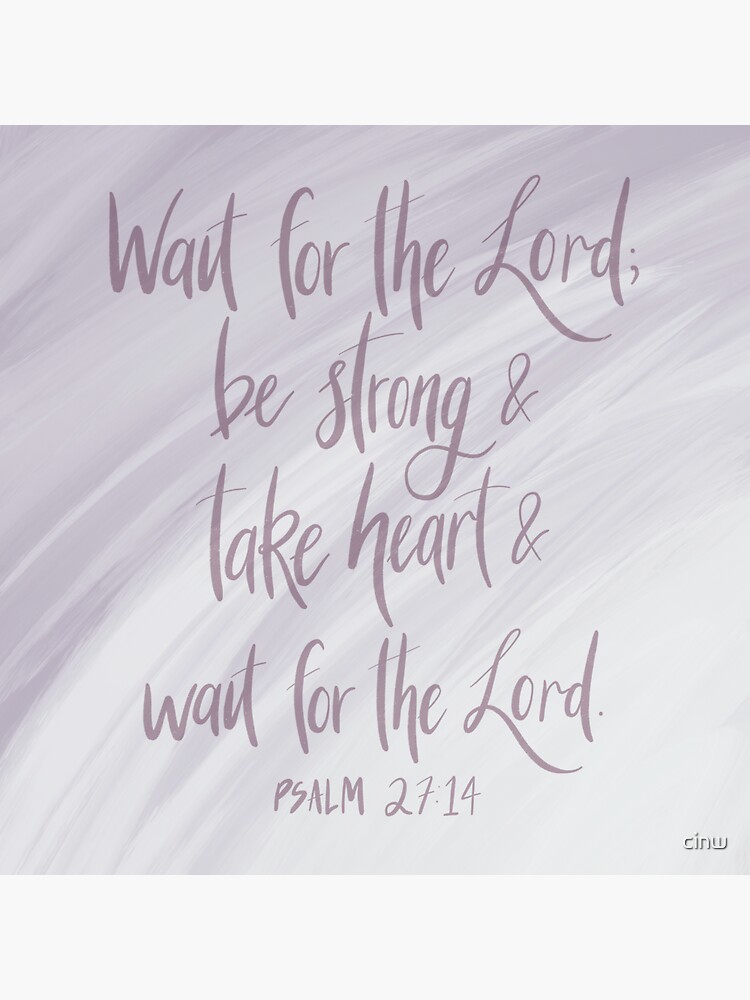 Wait for the Lord;
be strong &
take heart &
wait for the Lord.
PSALM 27:14
cinw